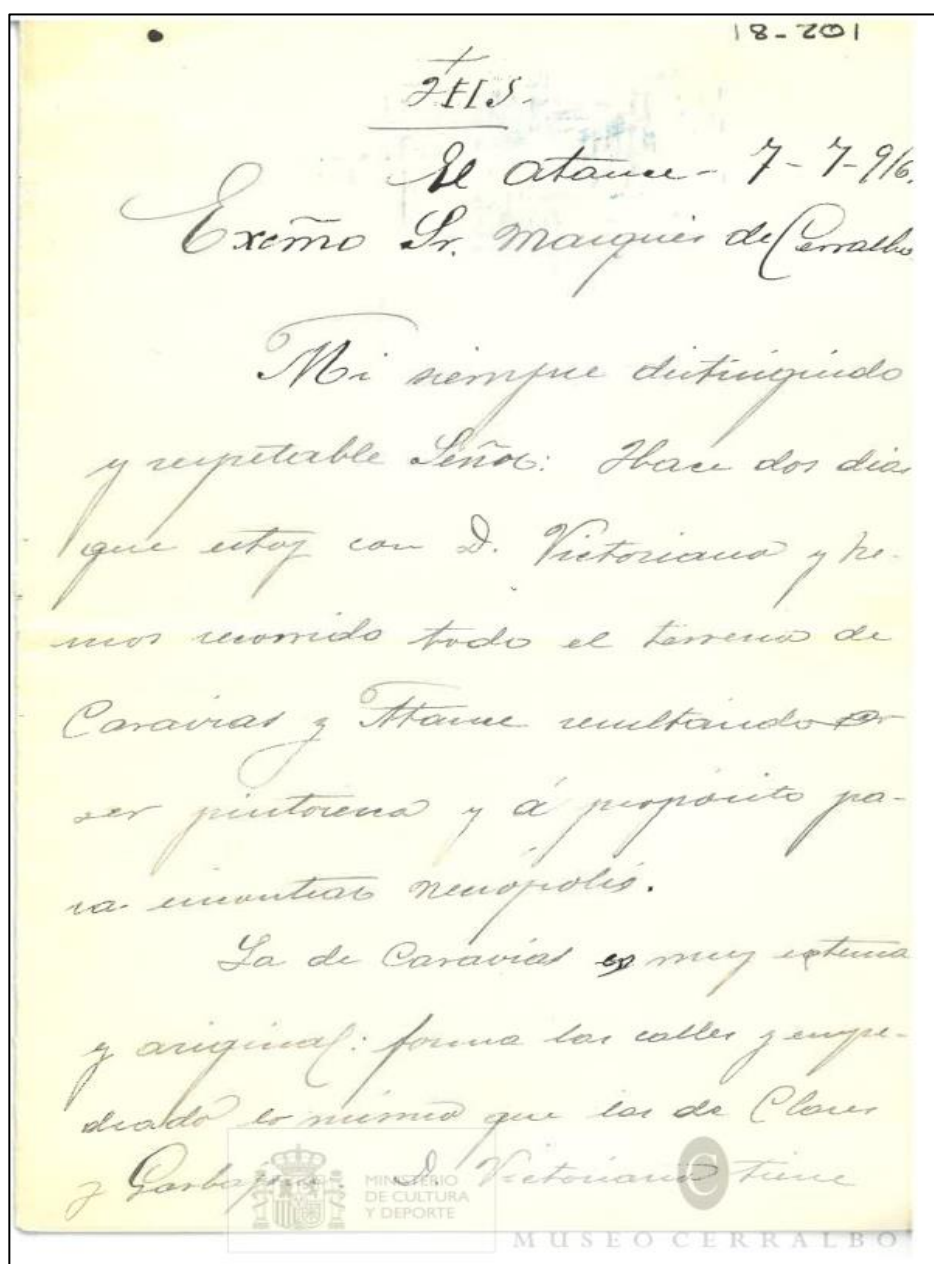 18-201
JHS-
El Atance - 7-7-916.
Excmo Sr. Marqués de Cerralbo
Mi siempre distinguido
y respetable Señor: Hace dos dias
que estoy con D. Victoriano y he-
mos recorrido todo el terreno de
Caravias y Atance resultando
ser pintoresco y á propósito pa-
ra encontrar necrópolis.
La de Caravias es muy extensa
y original: forma las calles y empe-
drado lo mismo que las de Clares
y D. Victoriano tiene
MINISTERIO
DE CULTURA
Y DEPORTE
MUSEO CERRALBO